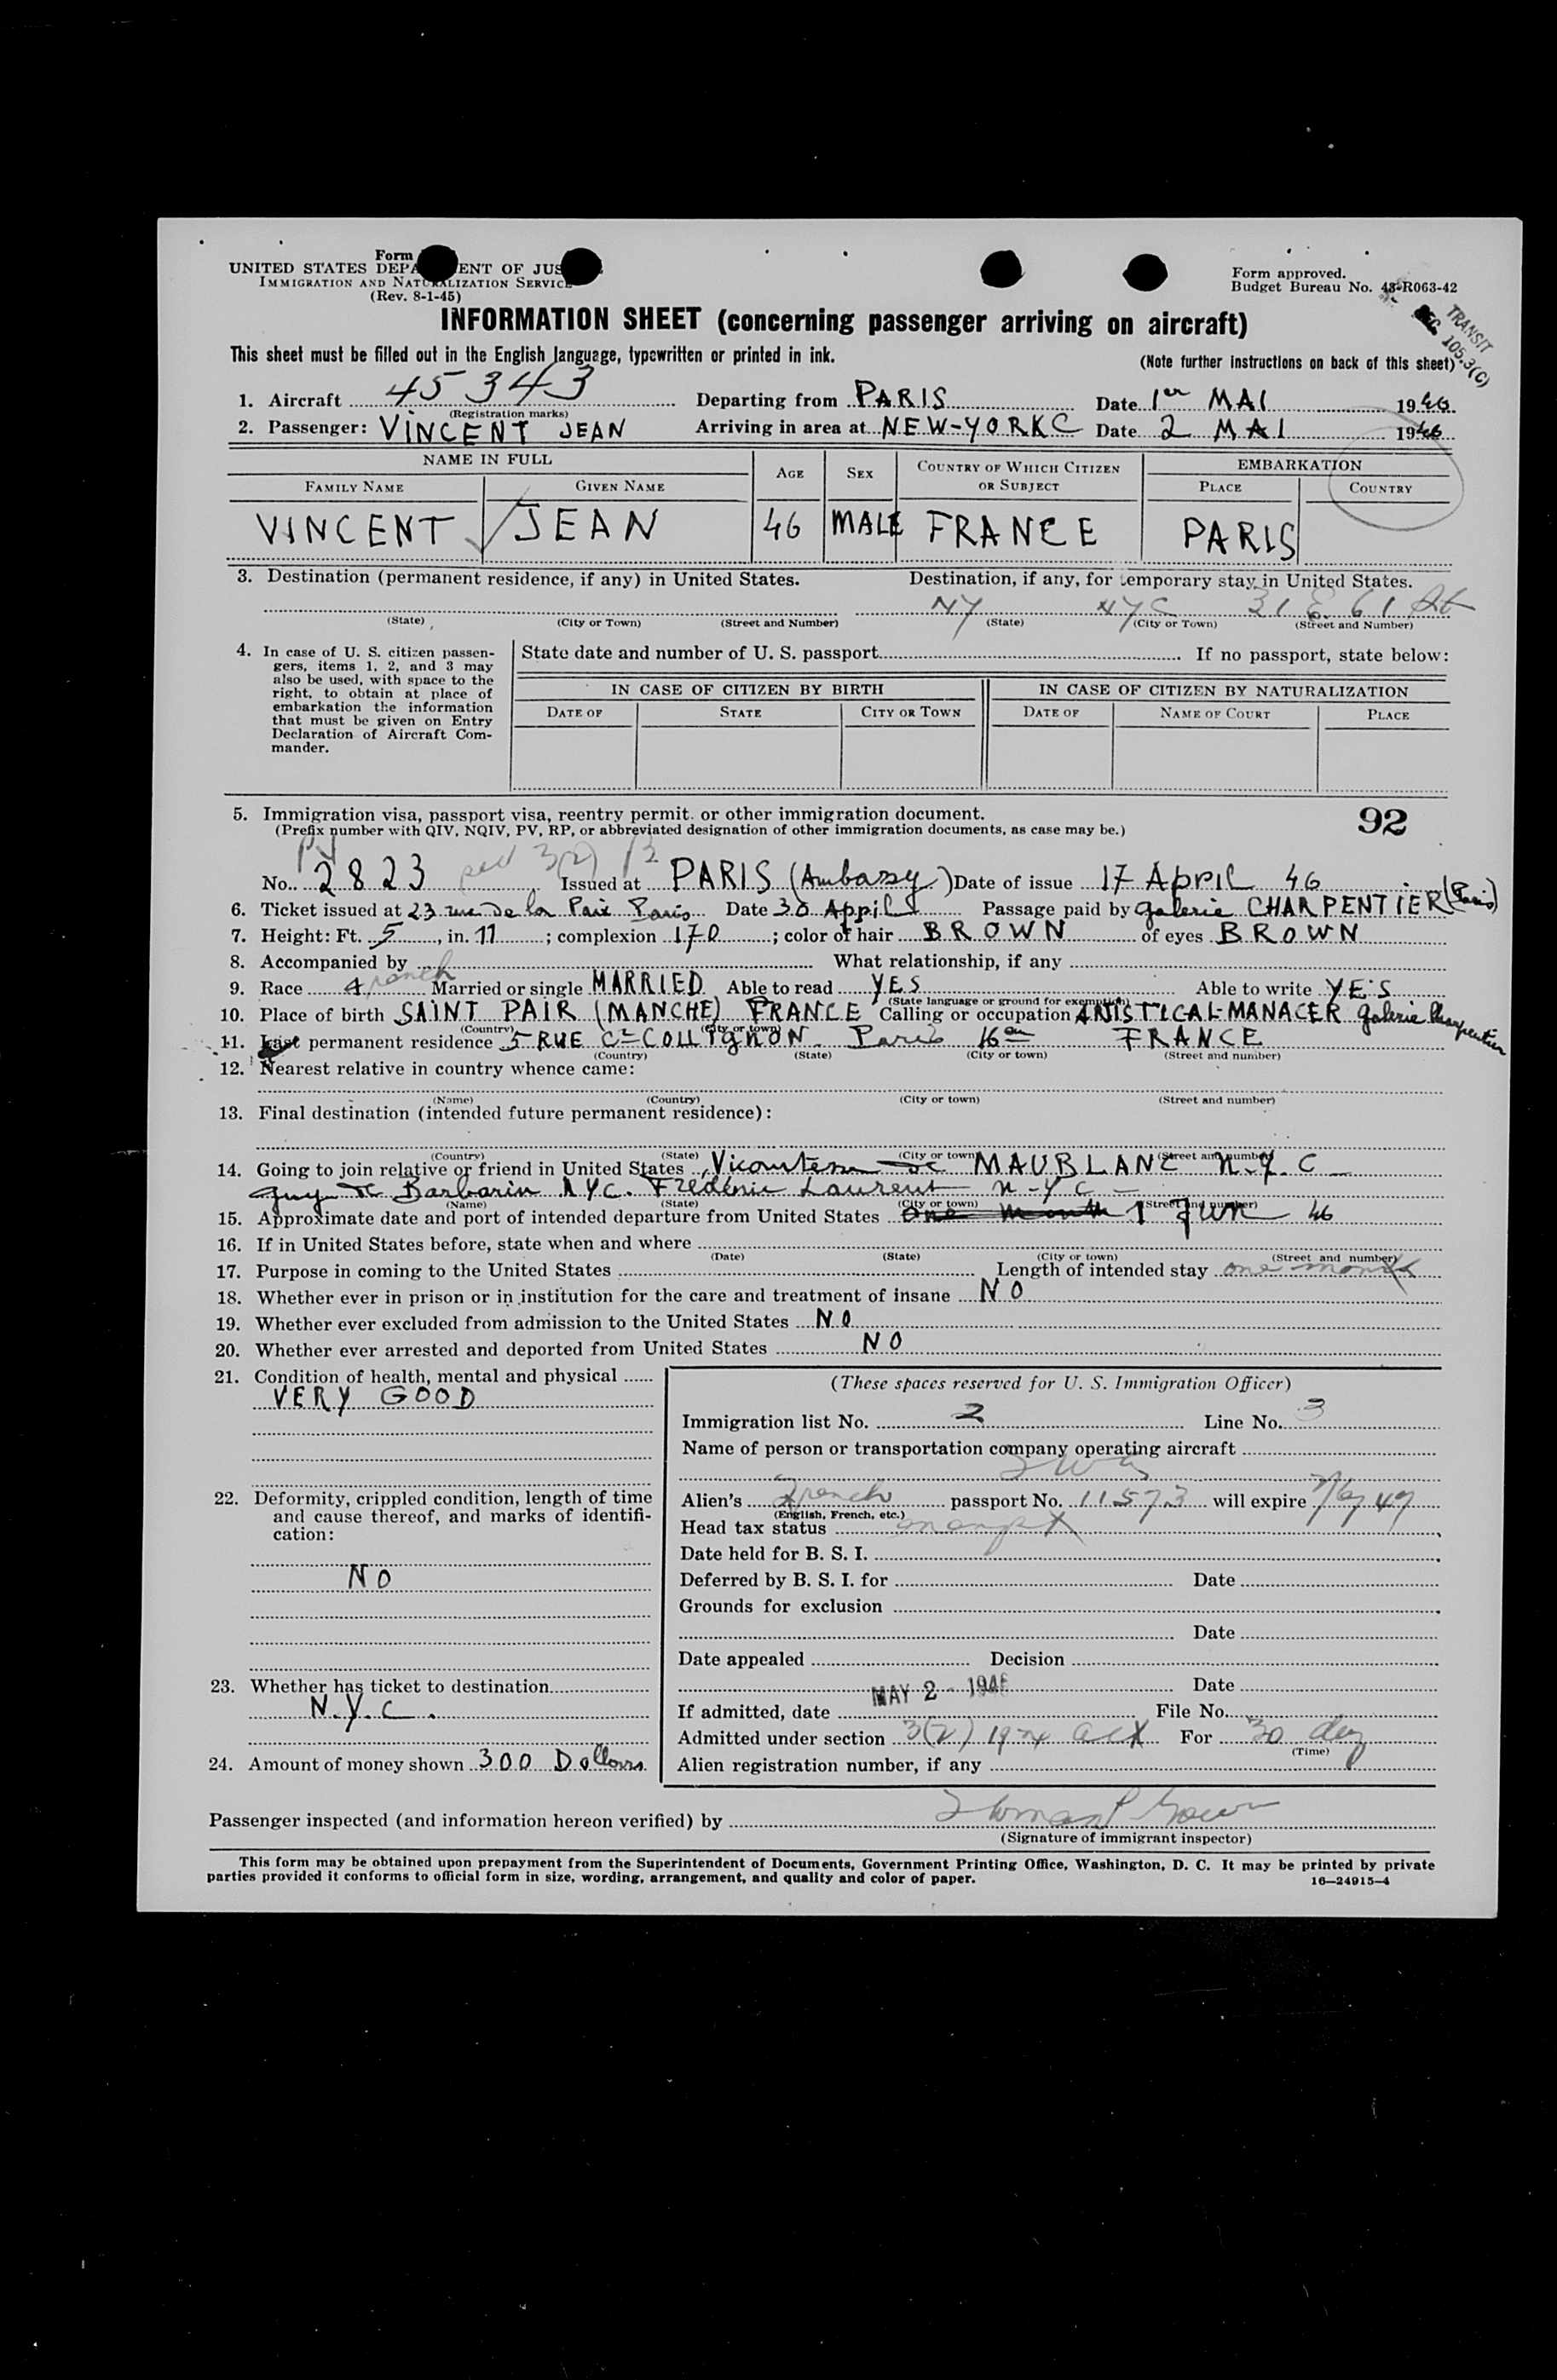 Form
UNITED STATES DEPA ENT OF JUS
IMMIGRATION AND NATURALIZATION SERVICE
(Rev. 8-1-45)
Form approved.
Budget Bureau No. 43-R063-42
TRANSIT
SEC. 105.3(C)
INFORMATION SHEET (concerning passenger arriving on aircraft)
This sheet must be filled out in the English language, typewritten or printed in ink.
(Note further instructions on back of this sheet)
1. Aircraft 45343 Departing from PARIS Date 1er MAI 1946
(Registration marks)
2. Passenger: VINCENT JEAN Arriving in area at NEW-YORKC Date 2 MAI 1946
NAME IN FULL AGE SEX COUNTRY OF WHICH CITIZEN OR SUBJECT EMBARKATION
FAMILY NAME GIVEN NAME PLACE COUNTRY
VINCENT JEAN 46 MALE FRANCE PARIS
3. Destination (permanent residence, if any) in United States. Destination, if any, for temporary stay in United States.
NY NYC 31 E 61 St
(State) (City or Town) (Street and Number) (State) (City or Town) (Street and Number)
4. In case of U. S. citizen passengers, items 1, 2, and 3 may also be used, with space to the right, to obtain at place of embarkation the information that must be given on Entry Declaration of Aircraft Commander.
State date and number of U. S. passport If no passport, state below:
IN CASE OF CITIZEN BY BIRTH IN CASE OF CITIZEN BY NATURALIZATION
DATE OF STATE CITY OR TOWN DATE OF NAME OF COURT PLACE
92
5. Immigration visa, passport visa, reentry permit. or other immigration document.
(Prefix number with QIV, NQIV, PV, RP, or abbreviated designation of other immigration documents, as case may be.)
PV 3(2)
No. 2823 Issued at PARIS (Ambassy) Date of issue 17 April 46
6. Ticket issued at 23 rue de la Paix Paris Date 30 Appil Passage paid by galerie CHARPENTIER (Paris)
7. Height: Ft. 5, in. 11; complexion 170; color of hair BROWN of eyes BROWN
8. Accompanied by What relationship, if any
9. Race French Married or single MARRIED Able to read YES Able to write YES
(State language or ground for exemption)
10. Place of birth SAINT PAIR (MANCHE) FRANCE Calling or occupation ARTISTICAL-MANACER galerie Charpentier
(Country) (City or town)
11. Last permanent residence 5 RUE Ct COLLIgNON Paris 16em FRANCE
(Country) (State) (City or town) (Street and number)
12. Nearest relative in country whence came:
(Name) (Country) (City or town) (Street and number)
13. Final destination (intended future permanent residence):
(Country) (State) (City or town) (Street and number)
14. Going to join relative or friend in United States Vicomtesse de MAUBLANC N.Y.C
guy de Barbarin N Y C. Frédéric Laurent N-Y C-
(Name) (State) (City or town) (Street and number)
15. Approximate date and port of intended departure from United States One month 1 Jun 46
16. If in United States before, state when and where
(Date) (State) (City or town) (Street and number)
17. Purpose in coming to the United States Length of intended stay one month
18. Whether ever in prison or in institution for the care and treatment of insane NO
19. Whether ever excluded from admission to the United States NO
20. Whether ever arrested and deported from United States NO
21. Condition of health, mental and physical
VERY GOOD
22. Deformity, crippled condition, length of time and cause thereof, and marks of identification:
NO
23. Whether has ticket to destination
N.Y.C.
24. Amount of money shown 300 Dollars
(These spaces reserved for U. S. Immigration Officer)
Immigration list No. 2 Line No. 3
Name of person or transportation company operating aircraft
TWA
Alien's French passport No. 11573 will expire
(English, French, etc.)
Head tax status exempt
Date held for B. S. I.
Deferred by B. S. I. for Date
Grounds for exclusion
Date
Date appealed Decision
Date
If admitted, date MAY 2 - 1946 File No.
Admitted under section 3(2) 1924 act For 30 day
(Time)
Alien registration number, if any
Passenger inspected (and information hereon verified) by Thomas P
(Signature of immigrant inspector)
This form may be obtained upon prepayment from the Superintendent of Documents, Government Printing Office, Washington, D. C. It may be printed by private
parties provided it conforms to official form in size, wording, arrangement, and quality and color of paper.
16—24915-4